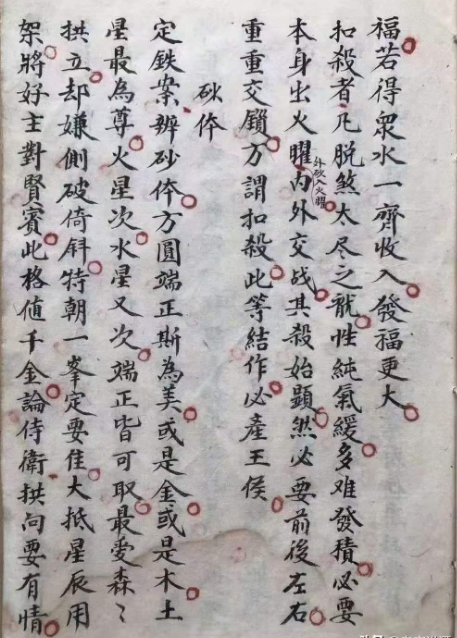 福若得衆水一齊收入發福更大
扣殺者凢脫煞太尽之龍性純氣緩多难發積必要
本身出火曜內外交战其殺始顯然必要前後左右
外砂入火曜
重重交鎖方謂扣殺此等結作必產王侯
砂体
定鉄案辨砂体方圓端正斯為美或是金或是木土
星最為尊火星次水星又次端正皆可取最爱森〻
拱立却嫌側破倚斜特朝一峯定要佳大抵星辰用
架將好主對賢賓此格值千金論侍衛拱向要有情